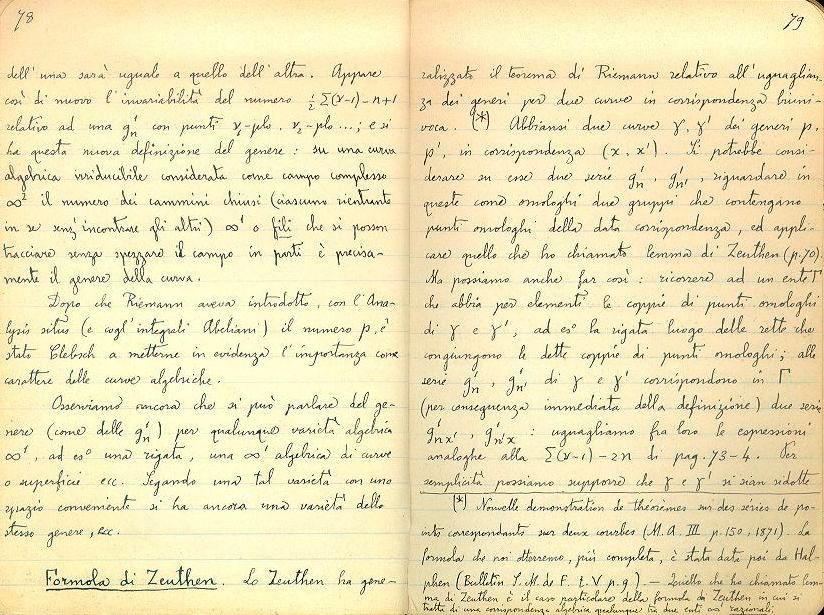 78
dell'una sarà uguale a quello dell'altra. Appare
così di nuovo l'invariabilità del numero ½ Σ(ν-1) - n + 1
relativo ad una g¹ₙ con punti ν₁-plo, ν₂-plo...; e si
ha questa nuova definizione del genere: su una curva
algebrica irriducibile considerata come campo complesso
∞² il numero dei cammini chiusi (ciascuno rientrante
in se senz'incontrare gli altri) ∞¹ o fili che si posson
tracciare senza spezzare il campo in parti è precisa-
mente il genere della curva.
Dopo che Riemann aveva introdotto, con l'Ana-
lysis situs (e cogl'integrali Abeliani) il numero p, è
stato Clebsch a metterne in evidenza l'importanza come
carattere delle curve algebriche.
Osserviamo ancora che si può parlare del ge-
nere (come delle g¹ₙ) per qualunque varietà algebrica
∞¹, ad es° una rigata, una ∞¹ algebrica di curve
o superficie ecc. Segando una tal varietà con uno
spazio conveniente si ha ancora una varietà dello
stesso genere, ecc.
Formola di Zeuthen. Lo Zeuthen ha gene-
79
ralizzato il teorema di Riemann relativo all'uguaglian-
za dei generi per due curve in corrispondenza biuni-
voca. (*) Abbiansi due curve γ, γ' dei generi p,
p', in corrispondenza (x, x'). Si potrebbe consi-
derare su esse due serie g¹ₙ, g¹ₙ', riguardare in
queste come omologhi due gruppi che contengano
punti omologhi della data corrispondenza, ed appli-
care quello che ho chiamato lemma di Zeuthen (p. 70).
Ma possiamo anche far così: ricorrere ad un ente Γ
che abbia per elementi le coppie di punti omologhi
di γ e γ', ad es° la rigata luogo delle rette che
congiungono le dette coppie di punti omologhi; alle
serie g¹ₙ, g¹ₙ' di γ e γ' corrispondono in Γ
(per conseguenza immediata della definizione) due serie
g¹ₙₓ', g¹ₙ'ₓ : uguagliamo fra loro le espressioni
analoghe alla Σ(ν-1) - 2n di pag. 73-4. Per
semplicità possiamo supporre che γ e γ' si sian ridotte
(*) Nouvelle demonstration de théorèmes sur des séries de po-
ints correspondants sur deux courbes (M. A. III p. 150, 1871). La
formola che noi otterremo, più completa, è stata data poi da Hal-
phen (Bulletin S. M. de F. t. V p. 9). — Quello che ho chiamato lem-
ma di Zeuthen è il caso particolare della formola di Zeuthen in cui si
tratta di una corrispondenza algebrica qualunque tra due enti ∞¹ razionali.